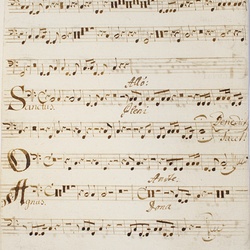 Allo:
Sanctus
Pleni
Benedictus
tacet
O
Andte
Agnus
Dona